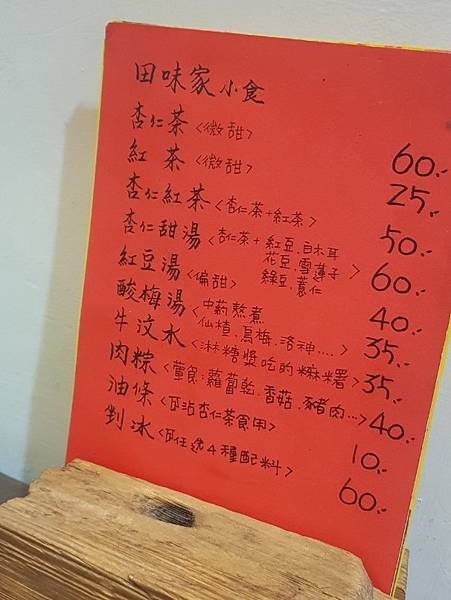 田味家小食
杏仁茶<微甜> 60.-
紅茶<微甜> 25.-
杏仁紅茶<杏仁茶+紅茶> 50.-
杏仁甜湯<杏仁茶+紅豆.白木耳 60.-
花豆.雪蓮子
綠豆.薏仁>
紅豆湯<偏甜> 40.-
酸梅湯<中葯熬煮 35.-
仙楂.烏梅.洛神....>
牛汶水<淋糖漿吃的麻糬> 35.-
肉粽<葷食:蘿蔔乾.香菇.豬肉...> 40.-
油條<可沾杏仁茶食用> 10.-
剉冰<可任選4種配料> 60.-